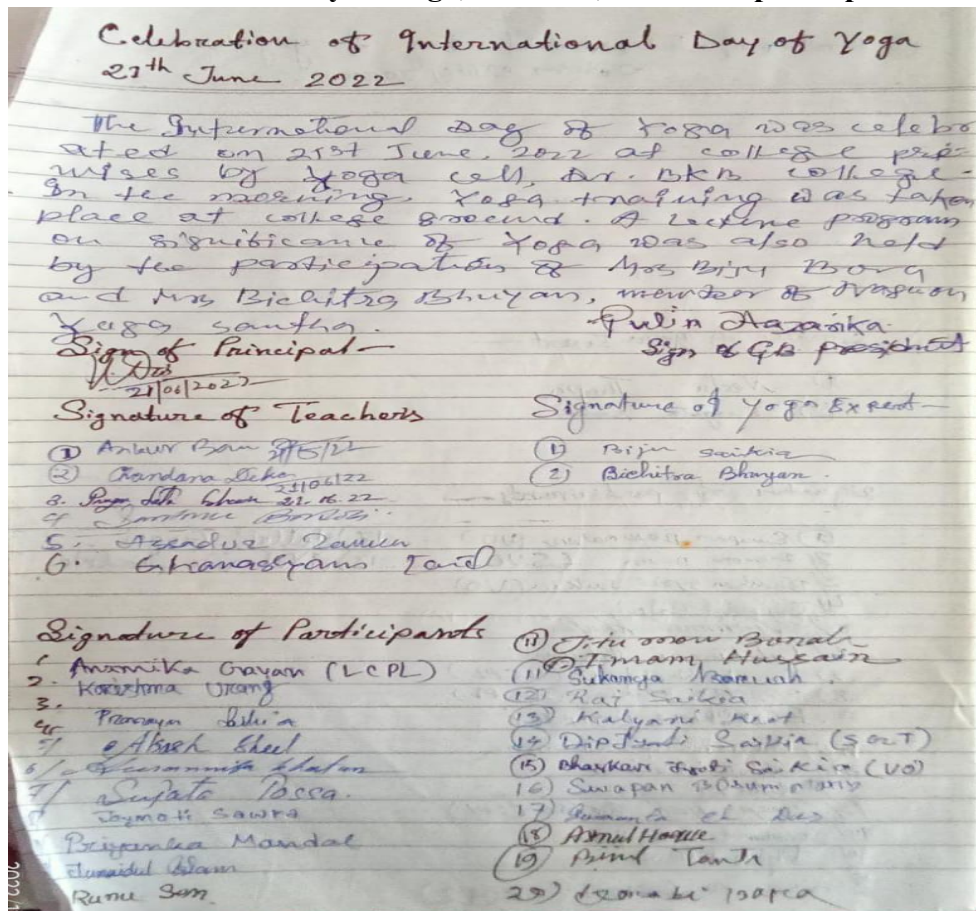 Celebration of International Day of Yoga
21th June 2022
The International Day of Yoga was celebr
ated on 21st June, 2022 at college pre-
mises by Yoga cell, Dr. BKB college.
In the morning. Yoga training was taken
place at college ground. A Lecture program
on significance of Yoga was also held
by the participation of Mrs Biju Bora
and Mrs Bichitra Bhuyan, member of
Yoga santha.
Pulin Hazarika
Sign of Principal
Sign of GB President
21/06/2022
Signature of Teachers
Signature of Yoga Expert
① Ankur
② Chandana Deka 21/06/22
3. 21.06.22
4
5.
6. Ghanashyam Taid
① Biju Saikia
② Bichitra Bhuyan.
Signature of Participants
1. Anamika Gayan (LCPL)
2. Karishma Urang
3.
4.
5/ Akash Sheel
6/ Khatun
7/ Sujata Tossa.
8 Joymoti Sawra
Priyanka Mandal
Junaidul Islam
Runu Son
Jitumoni Borah
Imam Hussain
(11) Sukanya Baruah
(12) Raj Saikia
(13) Kalyani Kaot
(14) Saikia (SGT)
(15) Bhaskar Jyoti Saikia (UO)
16) Swapan
17) ch Das
(18) Haque
(19)
20)